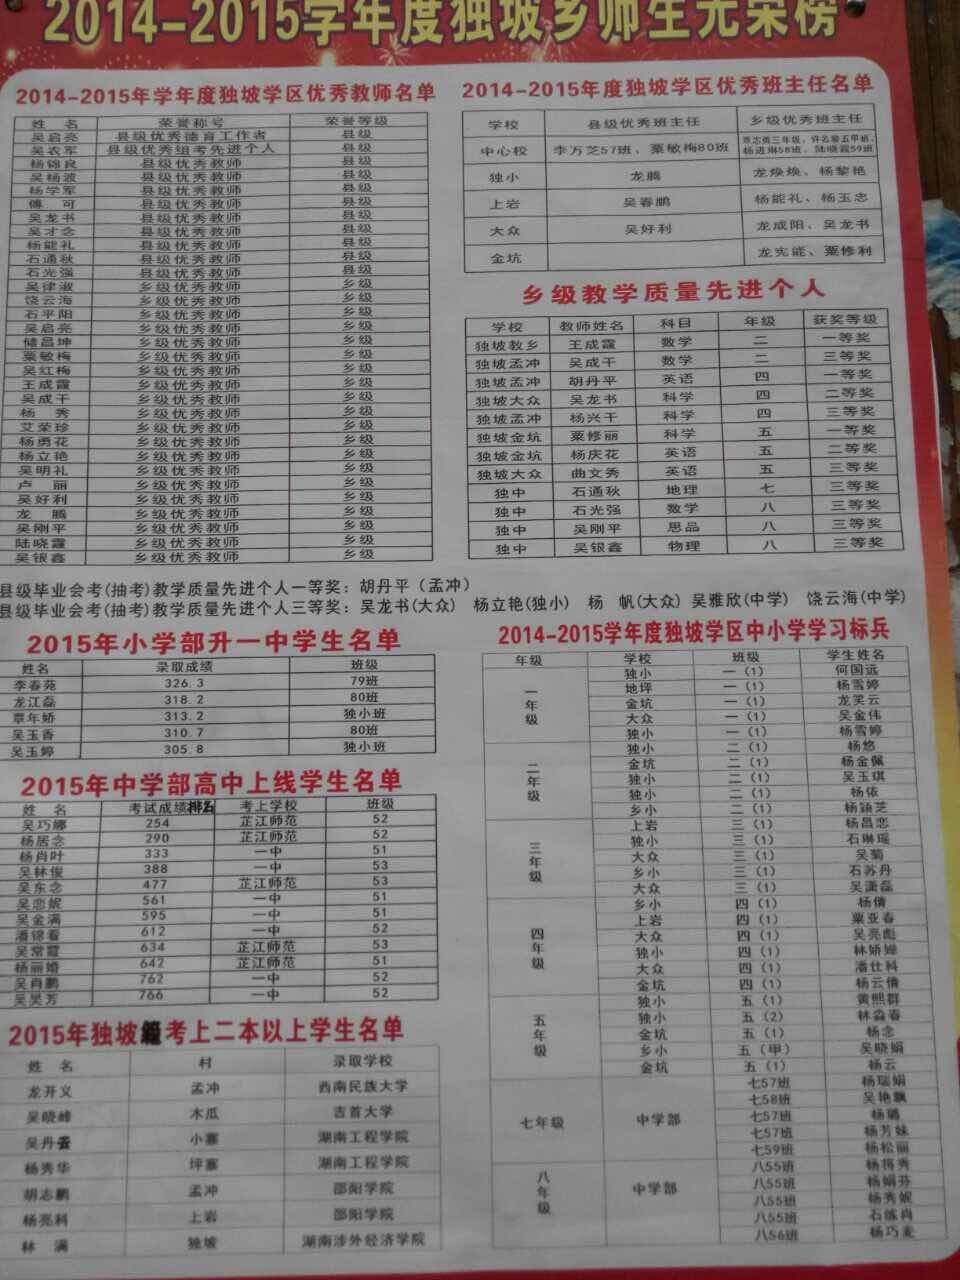 2014-2015学年度独坡乡师生光荣榜
2014-2015年学年度独坡学区优秀教师名单
姓 名 荣誉称号 荣誉等级
吴启亮 县级优秀德育工作者 县级
吴农军 县级优秀组考先进个人 县级
杨锦良 县级优秀教师 县级
吴杨波 县级优秀教师 县级
杨学军 县级优秀教师 县级
傅 可 县级优秀教师 县级
吴龙书 县级优秀教师 县级
吴才念 县级优秀教师 县级
杨能礼 县级优秀教师 县级
石通秋 县级优秀教师 县级
石光强 县级优秀教师 县级
吴律淑 乡级优秀教师 乡级
饶云海 乡级优秀教师 乡级
石平阳 乡级优秀教师 乡级
吴启亮 乡级优秀教师 乡级
储昌坤 乡级优秀教师 乡级
粟敏梅 乡级优秀教师 乡级
吴红梅 乡级优秀教师 乡级
王成霞 乡级优秀教师 乡级
吴成干 乡级优秀教师 乡级
杨 秀 乡级优秀教师 乡级
艾荣珍 乡级优秀教师 乡级
杨勇花 乡级优秀教师 乡级
杨立艳 乡级优秀教师 乡级
吴明礼 乡级优秀教师 乡级
卢 丽 乡级优秀教师 乡级
吴好利 乡级优秀教师 乡级
龙 腾 乡级优秀教师 乡级
吴刚平 乡级优秀教师 乡级
陆晓霞 乡级优秀教师 乡级
吴银鑫 乡级优秀教师 乡级
2014-2015年学年度独坡学区优秀班主任名单
学校 县级优秀班主任 乡级优秀班主任
中心校 李万芝57班、粟敏梅80班
杨进琳58班、陆晓霞59班
独小 龙腾 龙焕焕、杨黎艳
上岩 吴春鹏 杨能礼、杨玉忠
大众 吴好利 龙成阳、吴龙书
金坑 龙宪能、粟修利
乡级教学质量先进个人
学校 教师姓名 科目 年级 获奖等级
独坡教乡 王成霞 数学 二 一等奖
独坡孟冲 吴成干 数学 二 三等奖
独坡孟冲 胡丹平 英语 四 一等奖
独坡大众 吴龙书 科学 四 二等奖
独坡孟冲 杨兴干 科学 四 三等奖
独坡金坑 粟修丽 科学 五 一等奖
独坡金坑 杨庆花 英语 五 二等奖
独坡大众 曲文秀 英语 五 三等奖
独中 石通秋 地理 七 三等奖
独中 石光强 数学 八 三等奖
独中 吴刚平 思品 八 三等奖
独中 吴银鑫 物理 八 三等奖
县级毕业会考(抽考)教学质量先进个人一等奖：胡丹平（孟冲）
县级毕业会考(抽考)教学质量先进个人三等奖：吴龙书(大众) 杨立艳(独小) 杨 帆(大众) 吴雅欣(中学) 饶云海(中学)
2015年小学部升一中学生名单
姓名 录取成绩 班级
李春苑 326.3 79班
龙江磊 318.2 80班
覃年娇 313.2 独小班
吴玉香 310.7 80班
吴玉婷 305.8 独小班
2015年中学部高中上线学生名单
姓 名 考试成绩排名 考上学校 班级
吴巧娜 254 芷江师范 52
杨居念 290 芷江师范 52
杨肖叶 333 一中 51
吴林俊 388 一中 53
吴东念 477 芷江师范 53
吴恋妮 561 一中 51
吴金满 595 一中 51
潘锦看 612 一中 52
吴常霞 634 芷江师范 53
杨丽婚 642 芷江师范 51
吴肖鹏 762 一中 52
吴炅芳 766 一中 52
2015年独坡籍考上二本以上学生名单
姓 名 村 录取学校
龙开义 孟冲 西南民族大学
吴晓峰 木瓜 吉首大学
吴丹 小寨 湖南工程学院
杨秀华 坪寨 湖南工程学院
胡志鹏 孟冲 邵阳学院
杨亮科 上岩 邵阳学院
林 满 独坡 湖南涉外经济学院
2014-2015学年度独坡学区中小学学习标兵
年级 学校 班级 学生姓名
一年级
独小 一（1） 何国远
地坪 一（1） 杨雪婷
金坑 一（1） 龙笑云
大众 一（1） 吴金伟
独小 一（1） 杨雪婷
二年级
独小 二（1） 杨悠
金坑 二（1） 杨金佩
独小 二（1） 吴玉琪
独小 二（1） 杨依
乡小 二（1） 杨颍芝
三年级
上岩 三（1） 杨昌恋
独小 三（1） 石琳瑶
大众 三（1） 吴菊
乡小 三（1） 石苏丹
大众 三（1） 吴潇磊
四年级
乡小 四（1） 杨倩
上岩 四（1） 粟亚春
大众 四（1） 吴亮彪
独小 四（1） 林娇婵
大众 四（1） 潘仕科
金坑 四（1） 杨云倩
五年级
独小 五（1） 黄熙群
独小 五（2） 林淼春
金坑 五（1） 杨念
乡小 五（甲） 吴晓娟
金坑 五（1） 杨云
七年级 中学部
七57班 杨瑞娟
七58班 吴艳飘
七57班 杨璐
七57班 杨芳妹
七59班 杨松丽
八年级 中学部
八55班 杨将秀
八55班 杨娟芬
八55班 杨秀妮
八55班 石练肖
八56班 杨巧麦